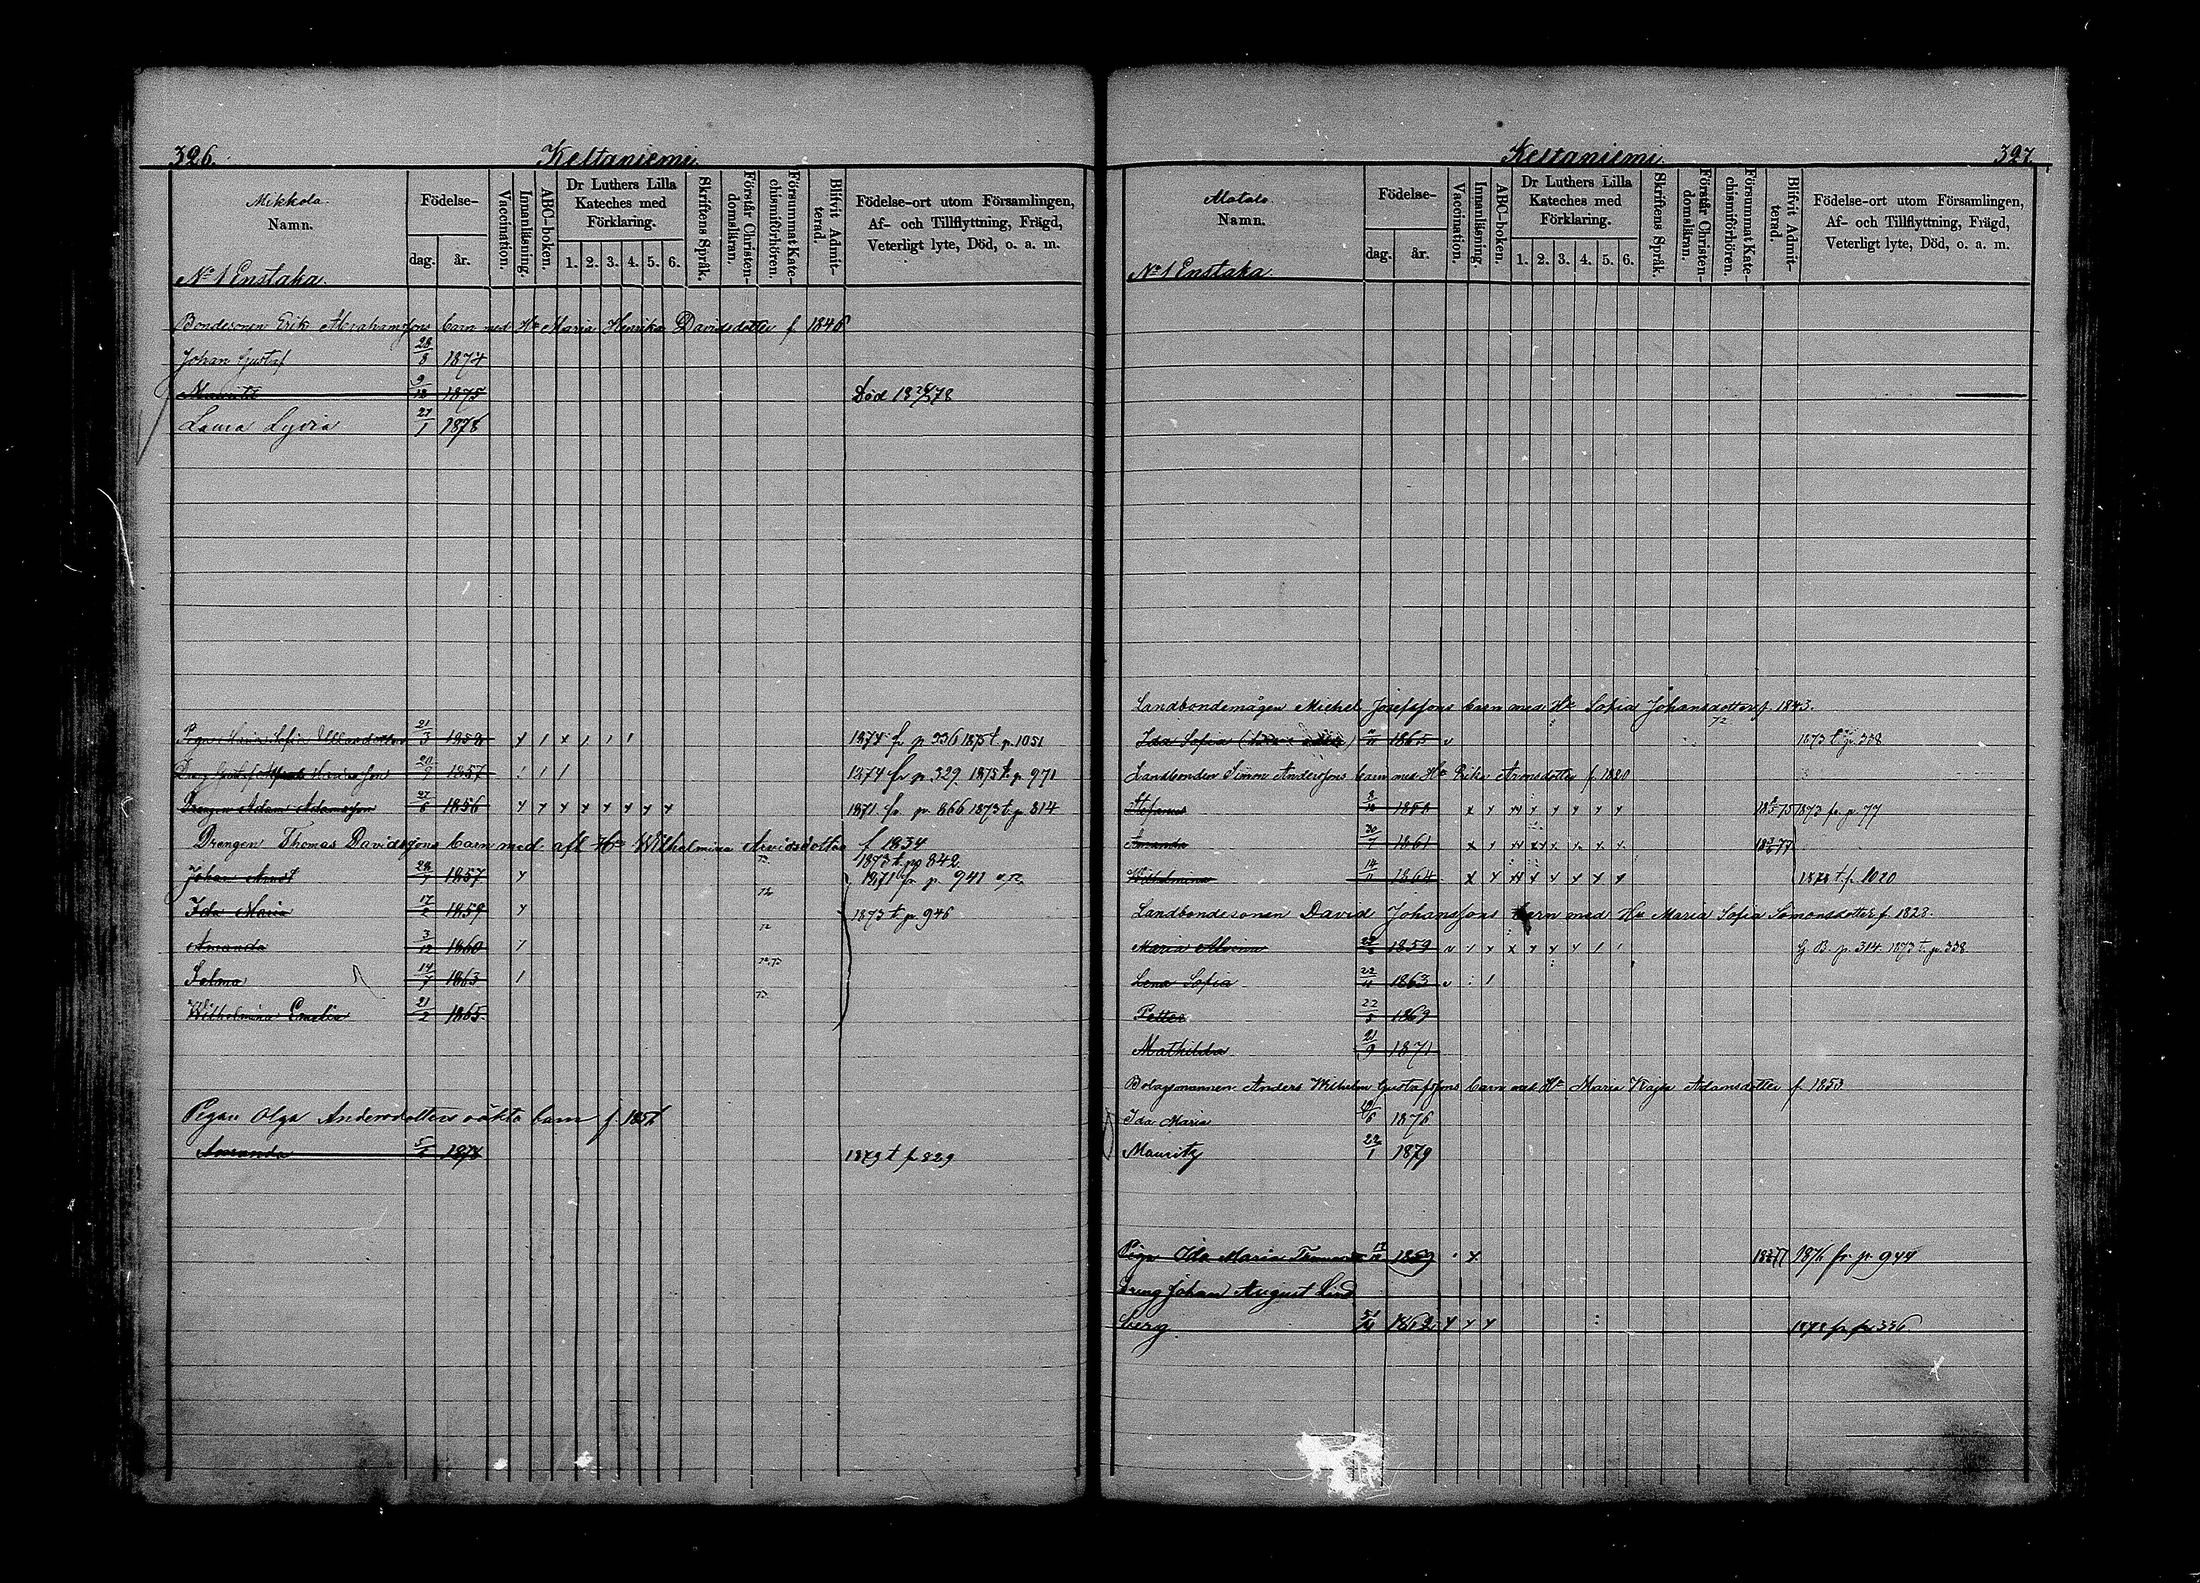 326.
Keltaniemi.
Mikkola.
Namn.
Födelse-
dag.
år.
Vaccination.
Innanläsning.
ABC-boken.
Dr Luthers Lilla
Kateches med
Förklaring.
1. 2. 3. 4. 5. 6.
Skriftens Språk.
Förstår Christen-
domsläran.
Försummat Kate-
chismiförhören.
Blifvit Admit-
terad.
Födelse-ort utom Församlingen,
Af- och Tillflyttning, Frägd,
Veterligt lyte, Död, o. a. m.
No 1 Enstaka.
Bondesonen Erik Abrahamssons barn med Hu Maria Henrika Davidsdotter f. 1846
Johan Gustaf 28/8 1874
1875 Död
Laura Lydia 27/1 1878
Pigan Maria Sofia 21/3 1874 fr. p. 336 1875 t. p. 1051
20/7 1857 1874 fr. p. 329. 1875 t. p. 971
Drengen Adam Adamsson 27/6 1856 1871 fr. p. 866 1873 t. p. 314
Drengen Thomas Davidssons barn med afl. Hu Wilhelmina Arvidsdotter f. 1834
1873 t. p. 842
Johan 28/7 1857 1871 fr. p. 941
Ida Maria 17/2 1859 1873 t. p. 946
Amanda 3/12 1860
Salma 14/7 1863
Wilhelmina Emelia 21/2 1865.
Pigan Olga Andersdotters oäkta barn f. 1856
Amanda 1878 1879 t. p. 829
327.
Keltaniemi.
Matala
Namn.
Födelse-
dag.
år.
Vaccination.
Innanläsning.
ABC-boken.
Dr Luthers Lilla
Kateches med
Förklaring.
1. 2. 3. 4. 5. 6.
Skriftens Språk.
Förstår Christen-
domsläran.
Försummat Kate-
chismiförhören.
Blifvit Admit-
terad.
Födelse-ort utom Församlingen,
Af- och Tillflyttning, Frägd,
Veterligt lyte, Död, o. a. m.
No 1 Enstaka.
Landbondemågen Michel Josefssons barn med Hu Sofia Johansdotter f. 1843.
Ida Sofia 1865 1873 t. p. 338
Landbonden Simon Anderssons barn med Hu Rika Aronsdotter f. 1820
Stefanus 1873 fr. p. 77
Amanda 1861
Wilhelmina 14/11 1864 1878 t. p. 1020
Landbondesonen David Johanssons barn med Hu Maria Sofia Simonsdotter f. 1828.
Maria 1859 p. 314. 1873 t. p. 338
Lena Sofia 22/4 1863
Petter 22/5 1869
Mathilda 21/9 1871
Bolagsmannen Anders Wilhelm Gustafssons barn med Hu Maria Kajsa Adamsdotter f. 1853
Ida Maria 19/6 1876
Mauritz 22/1 1879
Pigan Ida Maria 1859 fr. p. 944
Dreng Johan August Lind
berg 1862 1878 fr. p. 336.